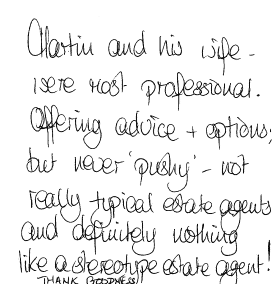 Martin and his wife -
were most professional.
Offering advice + options;
but never 'pushy' - not
really typical estate agents
and definitely nothing
like a stereotype estate agent!
THANK GOODNESS